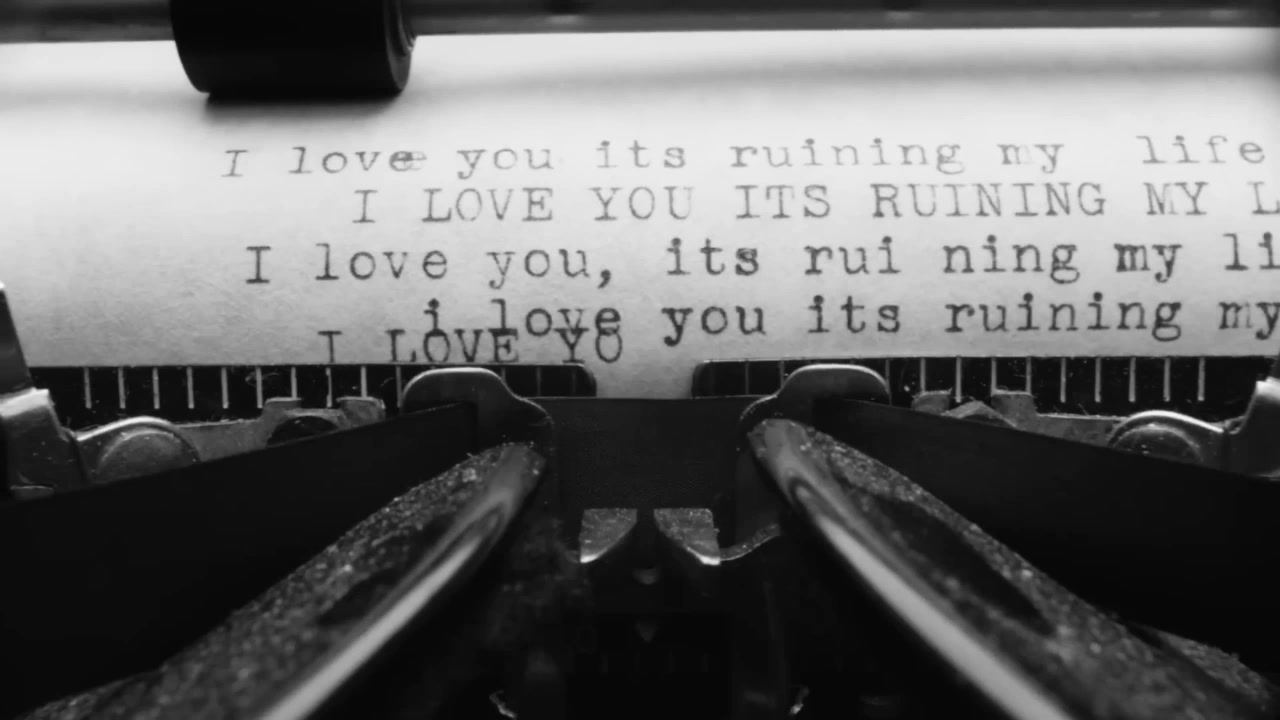 I lovee you its ruining my life
I LOVE YOU ITS RUINING MY L
I love you, its rui ning my li
i love you its ruining my
I LOVE YO